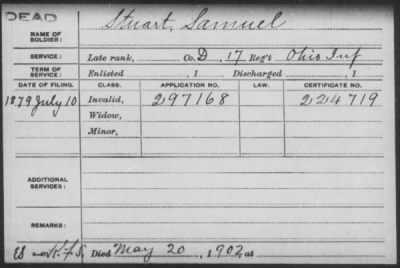 DEAD
Stuart, Samuel
NAME OF SOLDIER:
SERVICE: Late rank, Co. D, 17 Reg't Ohio Inf
TERM OF SERVICE: Enlisted , 1 Discharged , 1
DATE OF FILING. CLASS. APPLICATION NO. LAW. CERTIFICATE NO.
1879 July 10 Invalid, 297168 224719
Widow,
Minor,
ADDITIONAL SERVICES:
REMARKS:
Died May 20, 1902, at